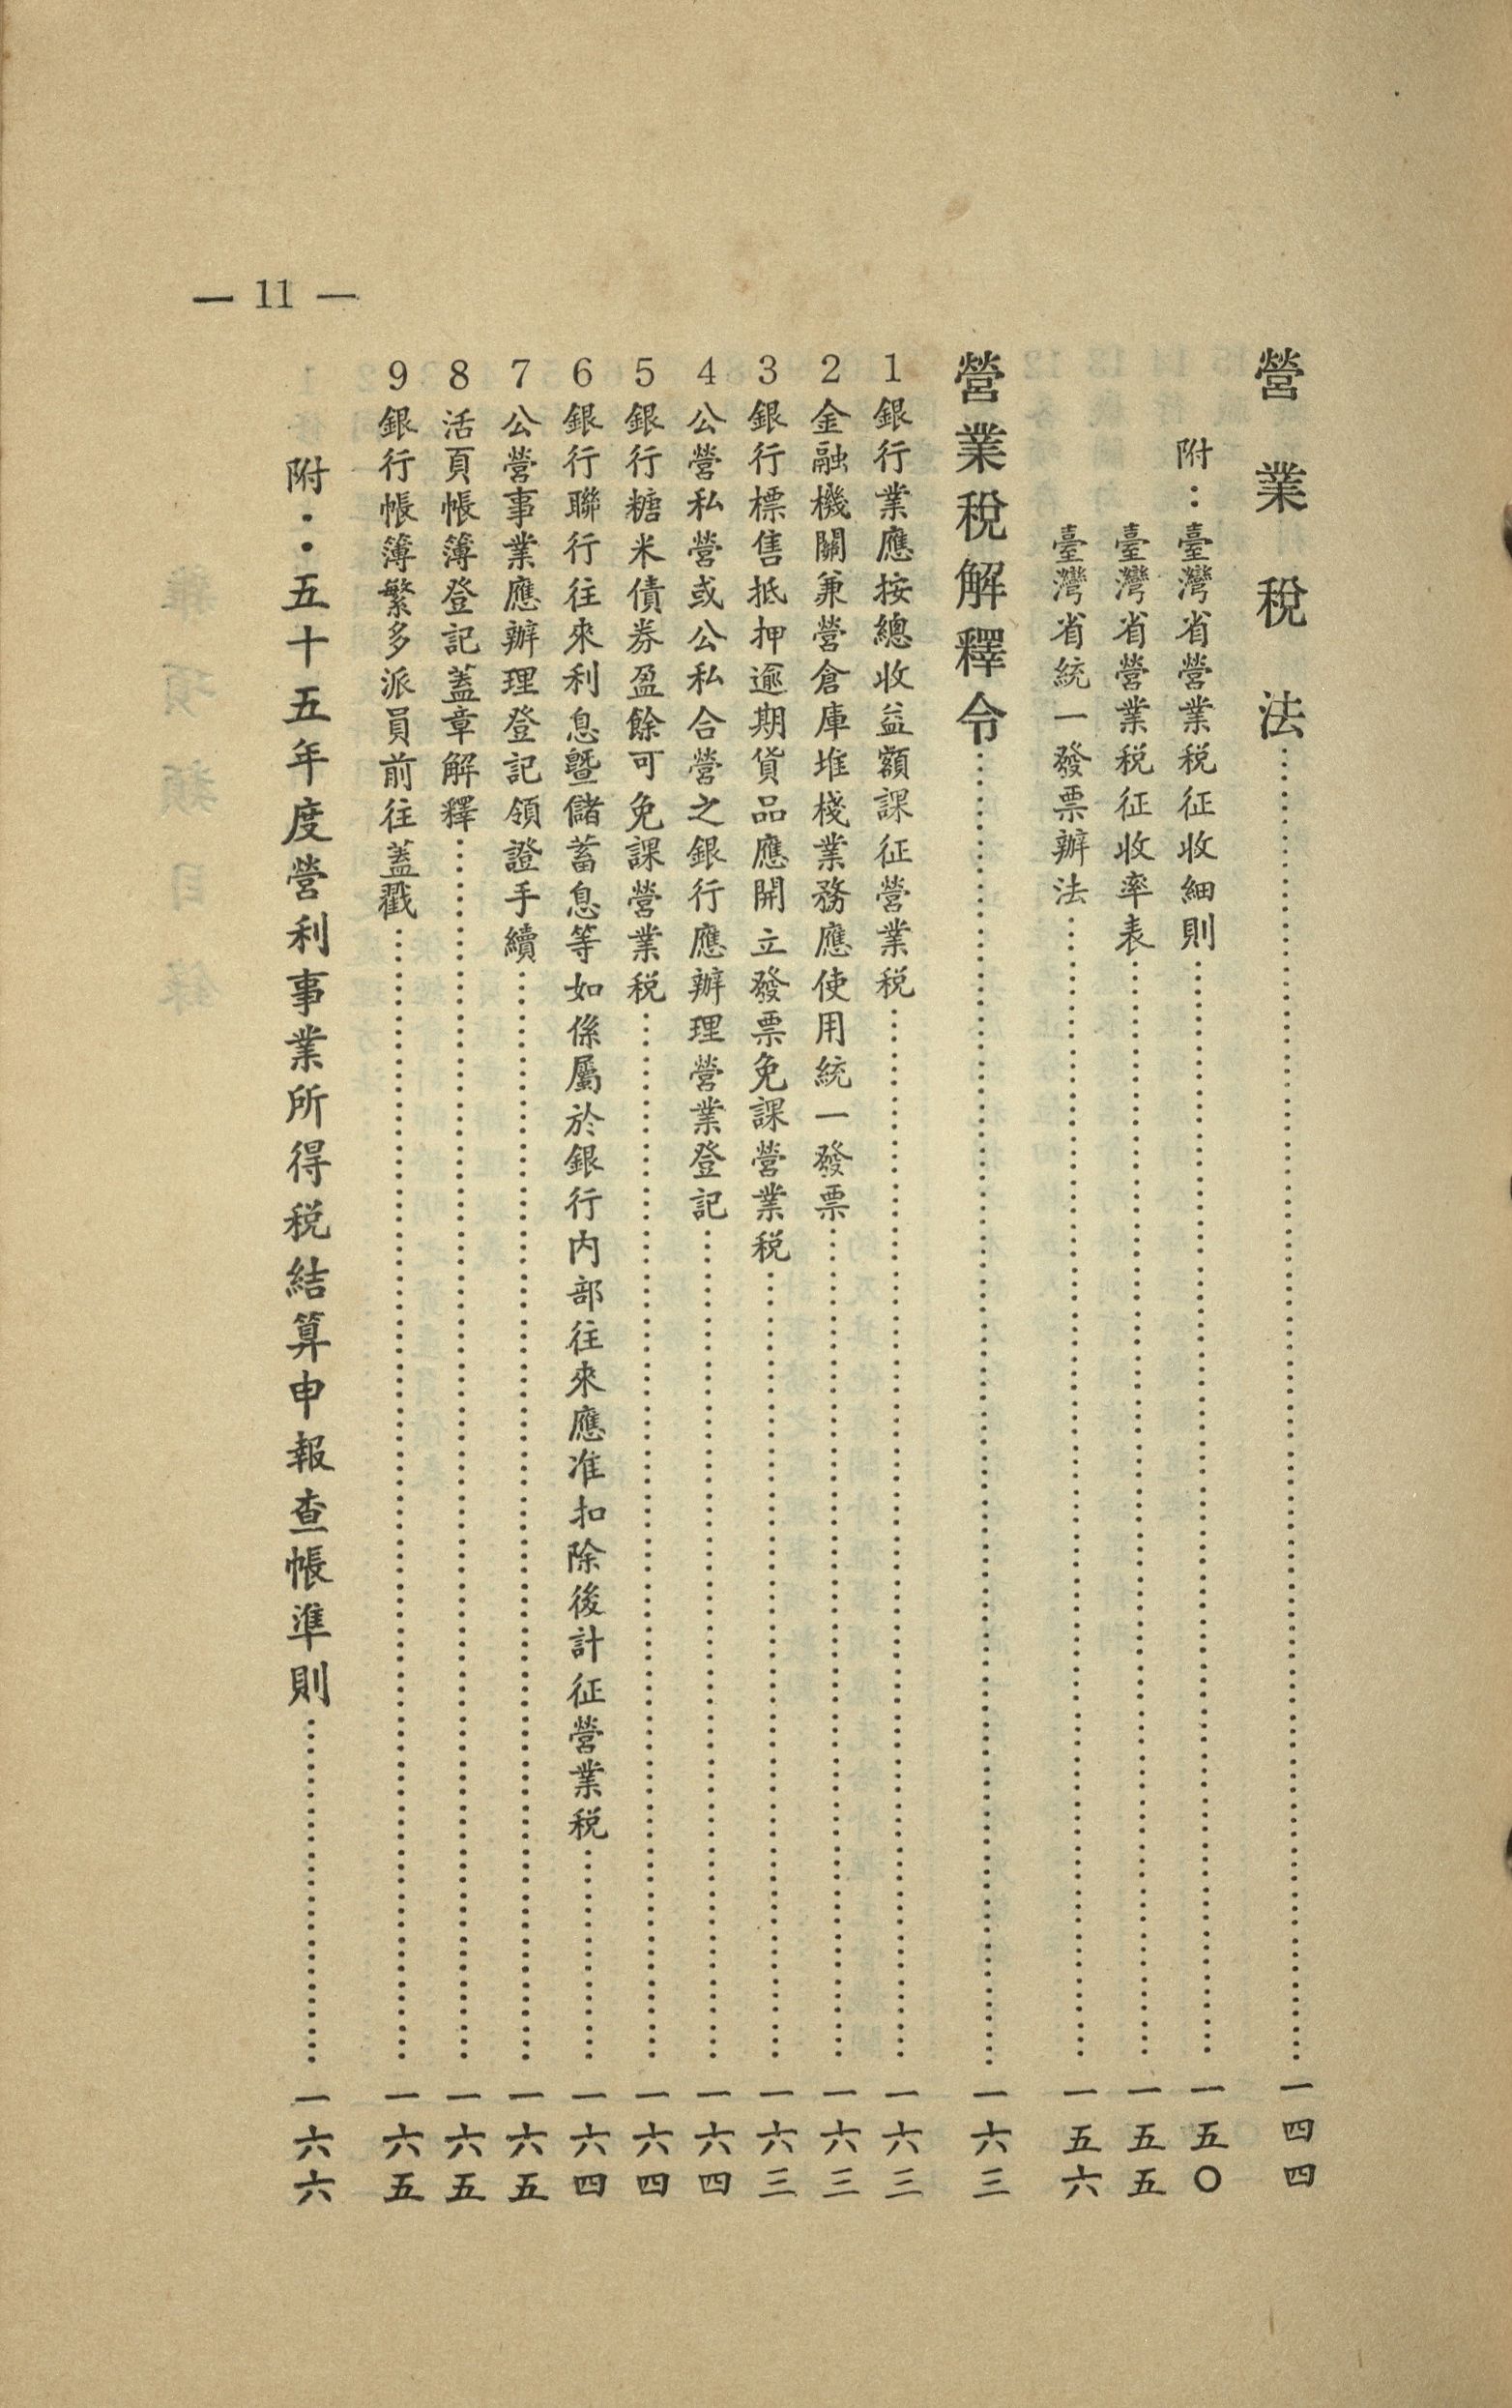 營業稅法……一四四
附：臺灣省營業稅征收細則……一五〇
臺灣省營業稅征收率表……一五五
臺灣省統一發票辦法……一五六
營業稅解釋令……一六三
1 銀行業應按總收益額課征營業稅……一六三
2 金融機關兼營倉庫堆棧業務應使用統一發票……一六三
3 銀行標售抵押逾期貨品應開立發票免課營業稅……一六三
4 公營私營或公私合營之銀行應辦理營業登記……一六四
5 銀行糖米債券盈餘可免課營業稅……一六四
6 銀行聯行往來利息暨儲蓄息等如係屬於銀行內部往來應准扣除後計征營業稅……一六四
7 公營事業應辦理登記領證手續……一六五
8 活頁帳簿登記蓋章解釋……一六五
9 銀行帳簿繁多派員前往蓋戳……一六五
附：五十五年度營利事業所得稅結算申報查帳準則……一六六
— 11 —